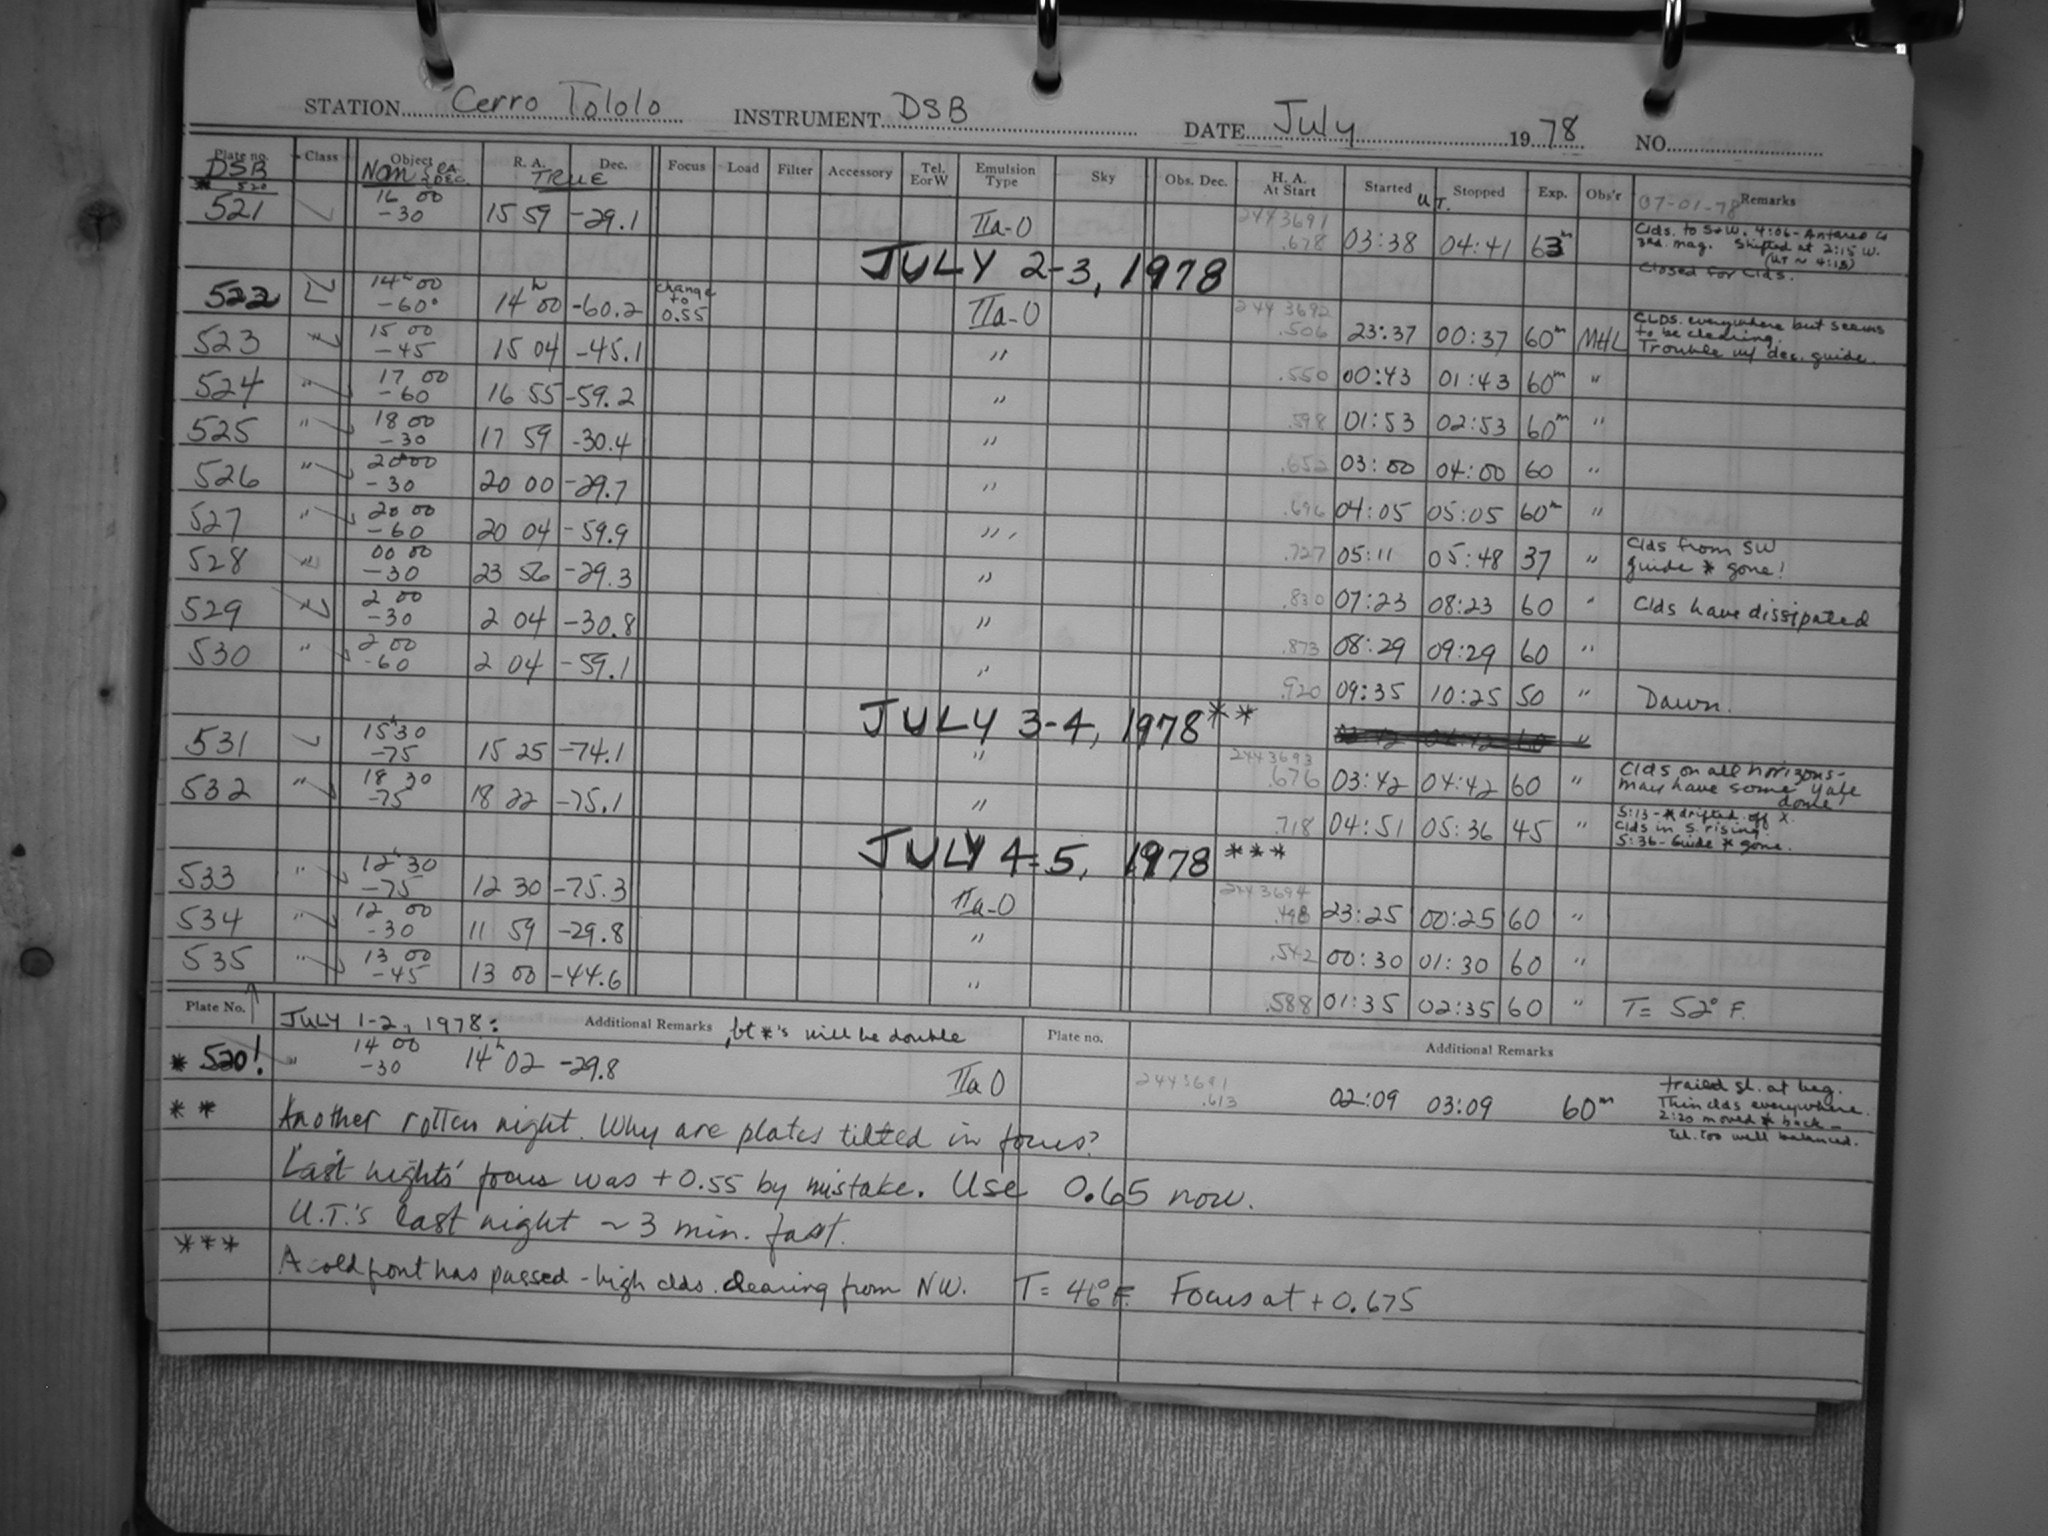 STATION Cerro Tololo INSTRUMENT DSB DATE July 19 78 NO.
Plate no. Class Object R. A. Dec. Focus Load Filter Accessory Tel. E or W Emulsion Type Sky Obs. Dec. H. A. At Start Started Stopped Exp. Obs'r Remarks
DSB Nom RA DEC TRUE U.T. 07-01-78
* 520
521 16 00 -30 15 59 -29.1 IIa-O 2443691 .678 03:38 04:41 63m Clds. to S+W. 4:06 - Antares is
3rd. mag. Shifted at 2:15 W.
(UT ~ 4:15)
Closed for Clds.
JULY 2-3, 1978
522 14h 00 -60° 14h 00 -60.2 change to 0.55 IIa-O 2443692 .506 23:37 00:37 60m MHL CLDS. everywhere but seems
to be clearing.
Trouble w/ dec. guide.
523 15 00 -45 15 04 -45.1 " .550 00:43 01:43 60m "
524 " 17 00 -60 16 55 -59.2 " .598 01:53 02:53 60m "
525 " 18 00 -30 17 59 -30.4 " .652 03:00 04:00 60 "
526 " 20 00 -30 20 00 -29.7 " .696 04:05 05:05 60m "
527 " 20 00 -60 20 04 -59.9 " .727 05:11 05:48 37 " Clds from SW
guide * gone!
528 " 00 00 -30 23 56 -29.3 " .830 07:23 08:23 60 " Clds have dissipated
529 " 2 00 -30 2 04 -30.8 " .873 08:29 09:29 60 "
530 " 2 00 -60 2 04 -59.1 " .920 09:35 10:25 50 " Dawn.
JULY 3-4, 1978 **
531 15h 30 -75 15 25 -74.1 " 2443693 .676 03:42 04:42 60 " Clds on all horizons-
may have some Yale
dome
532 " 18 30 -75 18 22 -75.1 " .718 04:51 05:36 45 " 5:13 - * drifted off X.
Clds in S. rising.
5:36 - Guide * gone.
JULY 4-5, 1978 ***
533 " 12h 30 -75 12 30 -75.3 IIa-O 2443694 .498 23:25 00:25 60 "
534 " 12 00 -30 11 59 -29.8 " .542 00:30 01:30 60 "
535 " 13 00 -45 13 00 -44.6 " .588 01:35 02:35 60 " T = 52° F.
Plate No. Additional Remarks Plate no. Additional Remarks
JULY 1-2, 1978: bt *'s will be double
* 520! " 14 00 -30 14h 02 -29.8 IIa O 2443691 .613 02:09 03:09 60m trailed sl. at beg.
Thin clds everywhere.
2:20 moved * back -
tel. too well balanced.
** Another rotten night. Why are plates tilted in focus?
Last nights' focus was +0.55 by mistake. Use 0.65 now.
U.T.'s last night ~ 3 min. fast.
*** A cold front has passed - high clds. clearing from NW. T = 46° F. Focus at +0.675